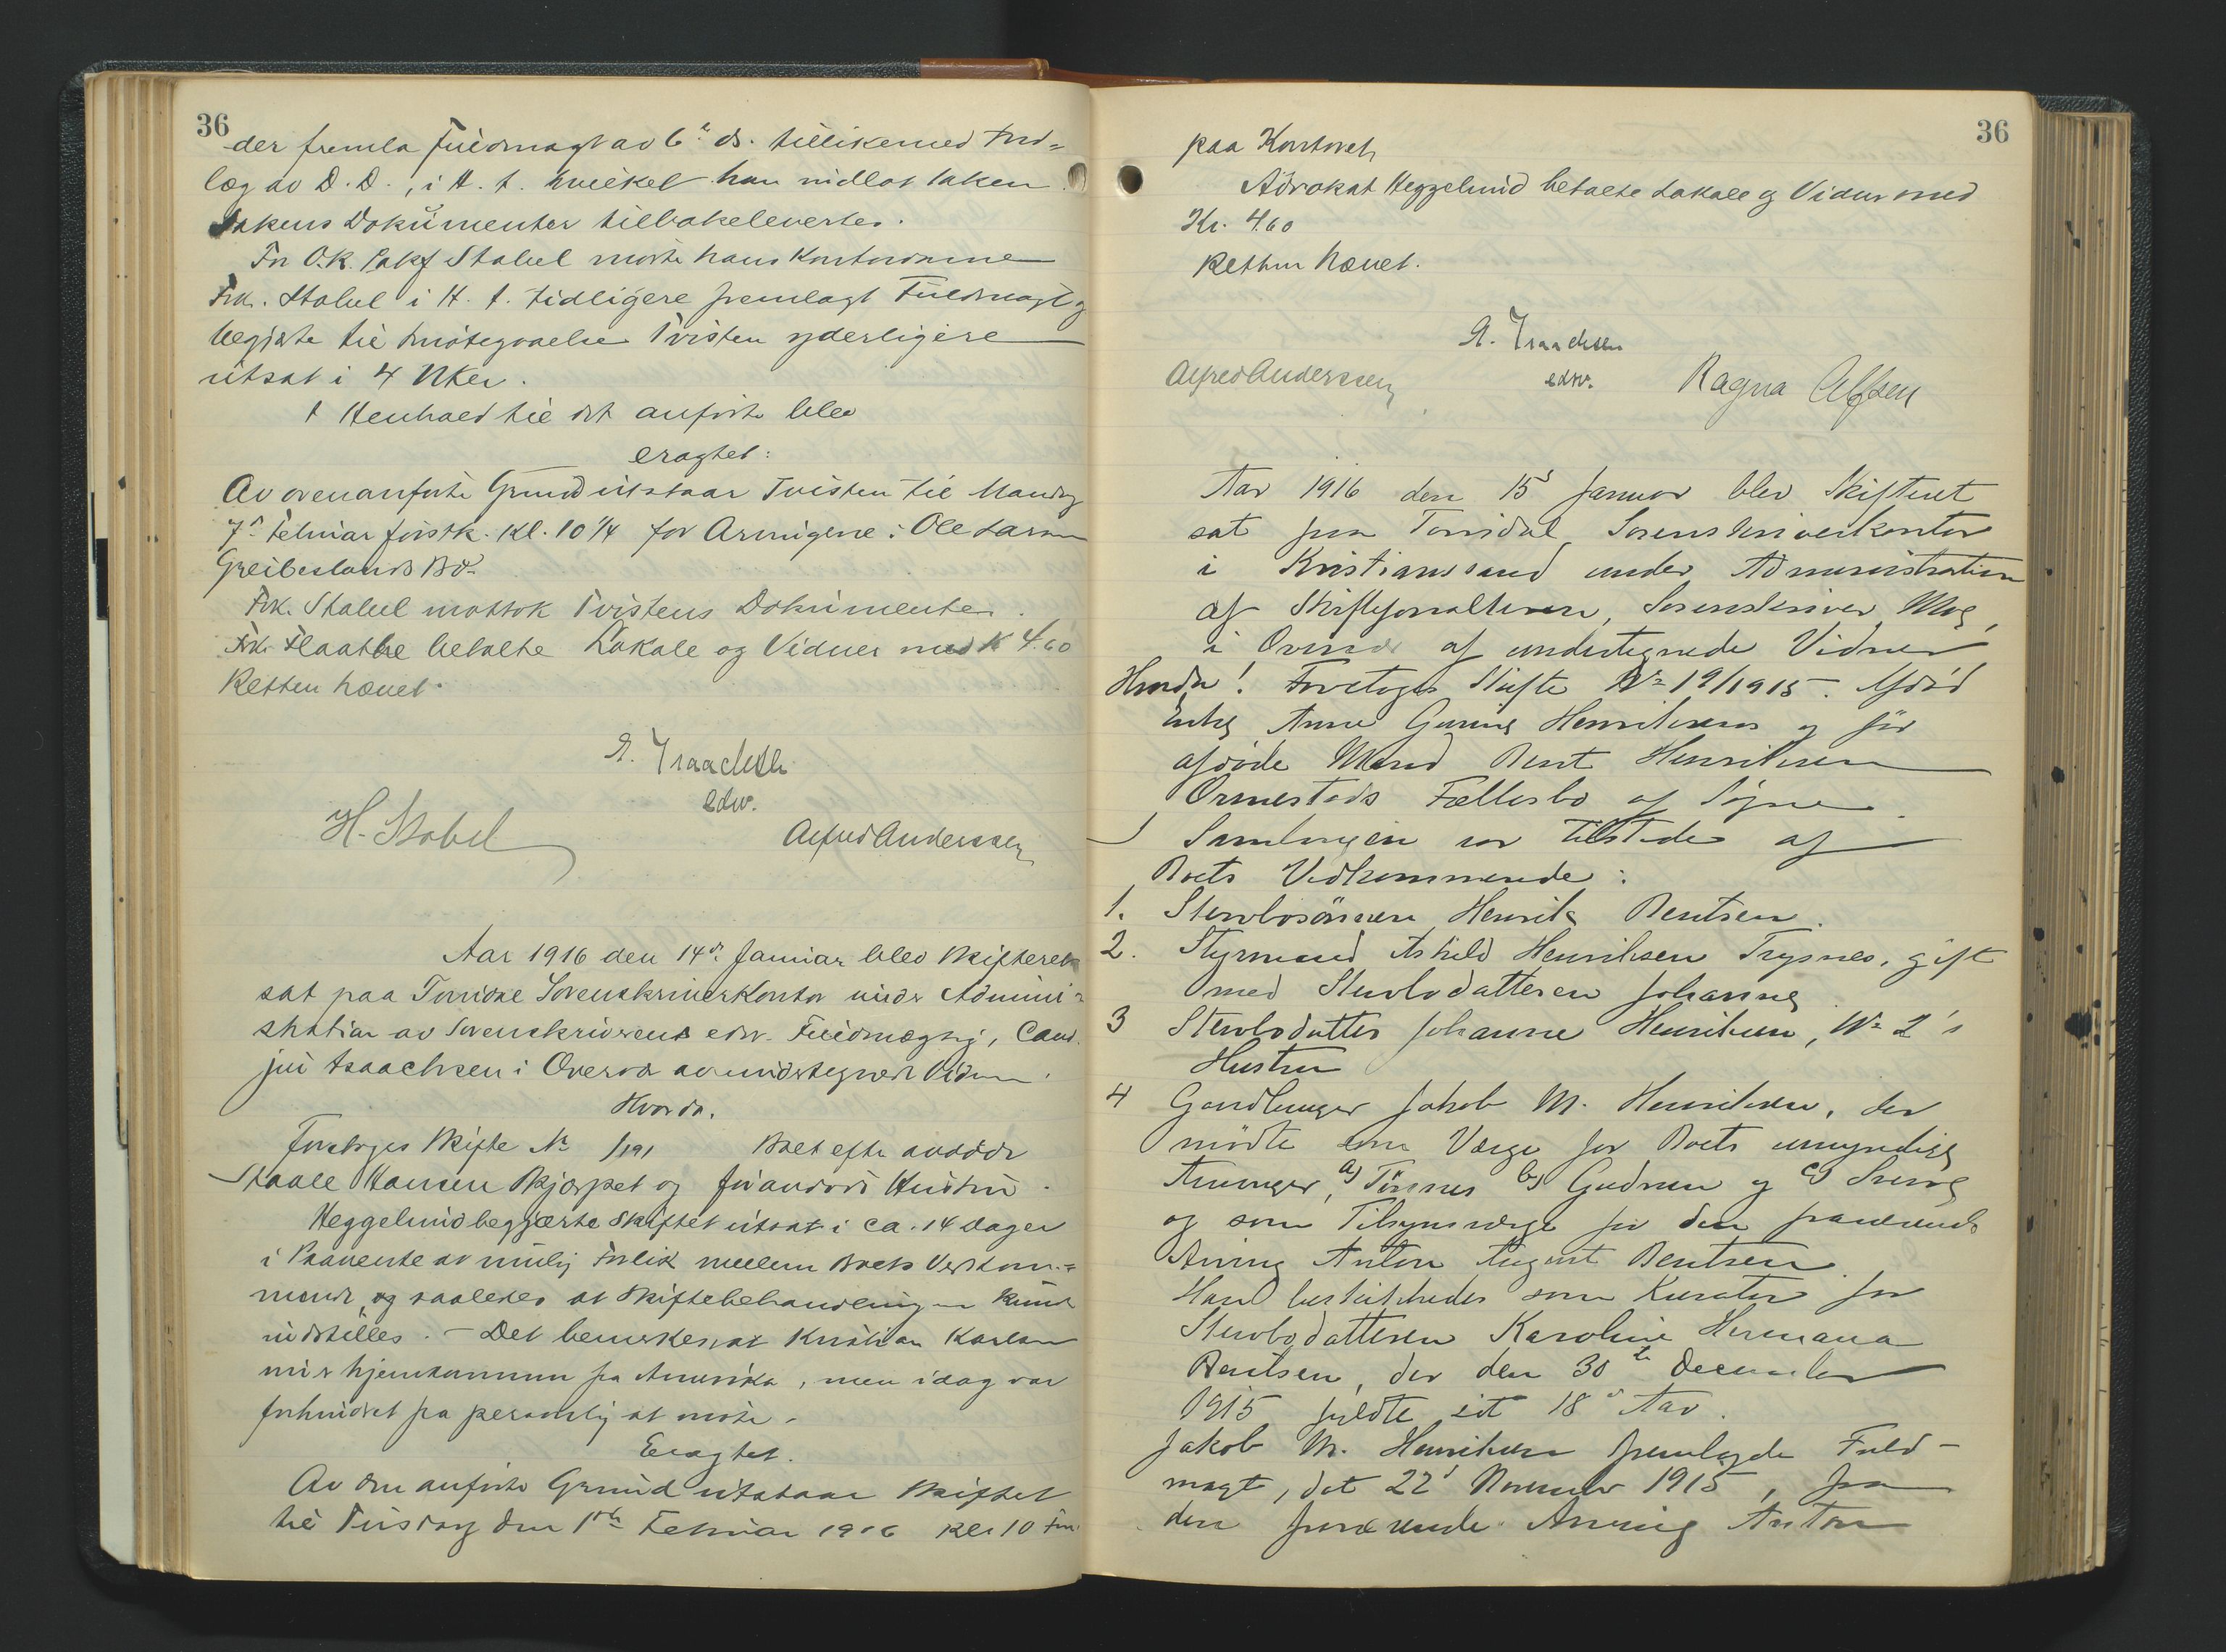 36
der fremla Fuldmagt av 6te ds. tillikemed Ind=
læg av D. D., i H. t. hvilket han indlot saken
Sakens Dokumenter tilbakelevertes.
For O.R. sakf Stabel møtte hans Kontordame
Frk. Stabel i H. t. tidligere fremlagt Fuldmagt og
begjærte til imøtegaaelse Tvisten yderligere
utsat i 4 Uker.
I Henhold til det anførte blev
eragtet:
Av ovenanførte Grund utstaar Tvisten til Mandag
7de Februar førstk. Kl. 10 1/4 for Arvingene i Ole Larsen
Greibeslands Bo.
Frk. Stabel mottok Tvistens Dokumenter.
Frk. Flaatbe betalte Lokale og Vidner med K 4.60
Retten hævet.
A. Isaachsen
edsv.
H. Stabel
Alfred Anderssen
Aar 1916 den 14de Januar blev Skifteret
sat paa Torridal Sorenskriverkontor under Admini=
stration av Sorenskriverens edsv. Fuldmægtig, Cand.
jur Isaachsen i Overvær av undertegnede Vidner.
Hvorda.
Foretoges Skifte No /191 Boet efter avdøde
Staale Hansen Skjærpet og føravdøde Hustru.
Heggelund begjærte Skiftet utsat i ca. 14 dager
i Paavente av mulig Forlik mellem Boets Vedkom=
mende, og saaledes at Skiftebehandlingen kunde
indstilles. - Det bemerkes, at Kristian Karlsen
nu er hjemkommen fra Amerika, men idag var
forhindret fra personlig at møte.
Eragtet.
Av den anførte Grund utstaar Skiftet
til Tirsdag den 1ste Februar 1916 Kl. 10 Fm.
36
paa Kontoret.
Advokat Heggelund betalte Lokale og Vidner med
Kr. 4.60
Retten hævet.
A. Isaachsen
edsv.
Alfred Anderssen
Ragna Alfsen
Aar 1916 den 15d Januar blev Skifteret
sat paa Torridal Sorenskriverkontor
i Kristianssand under Administration
af Skifteforvalteren, Sorenskriver Moe,
i Overvær af undertegnede Vidner
Hvorda! Foretoges Skifte No 19/1915. Afdød
Enke Anne Gurine Henriksens og før
afdøde Mand Bent Henriksen
Ormestads Fællesbo af Søgne.
I Samlingen var tilstede af
Boets Vedkommende:
1. Stervbosønnen Henrik Bentsen.
2. Styrmand Askild Henriksen Trysnes, gift
med Stervbodatteren Johanne
3 Stervbodatter Johanne Henriksen, No 2's
Hustru
4 Gaardbruger Jakob M. Henriksen, der
mødte som Værge for Boets umyndige
Arvinger, a) Tønnes b) Gudrun og c) Sverre
og som Tilsynsværge for den fraværende
Arving Anton August Bentsen.
Han beskikkedes som Kurator for
Stervbodatteren Karoline Hermana
Bentsen, der den 30te December
1915 fyldte sit 18de Aar.
Jakob M. Henriksen fremlagde Fuld-
magt, dat 22d November 1915, fra
den fraværende Arving Anton